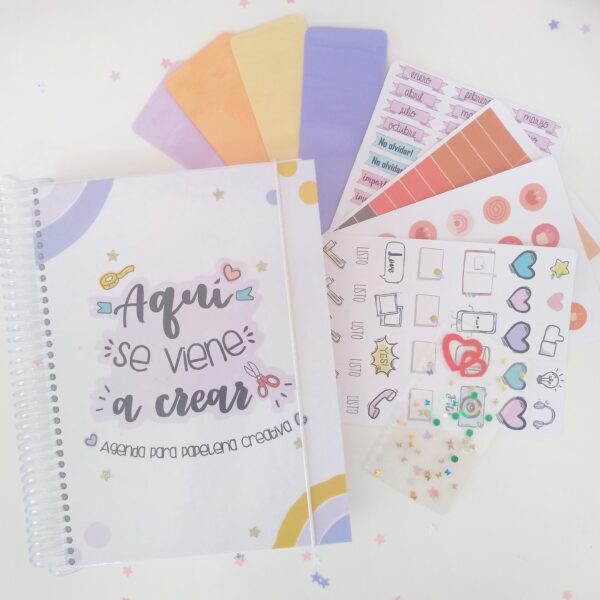 Aquí
se viene
a crear
Agenda para papelería creativa
enero
febrero
abril
mayo
julio
octubre
No olvidar!
No olvidar!
LISTO
LISTO
LISTO
LISTO
LISTO
Love
YES!